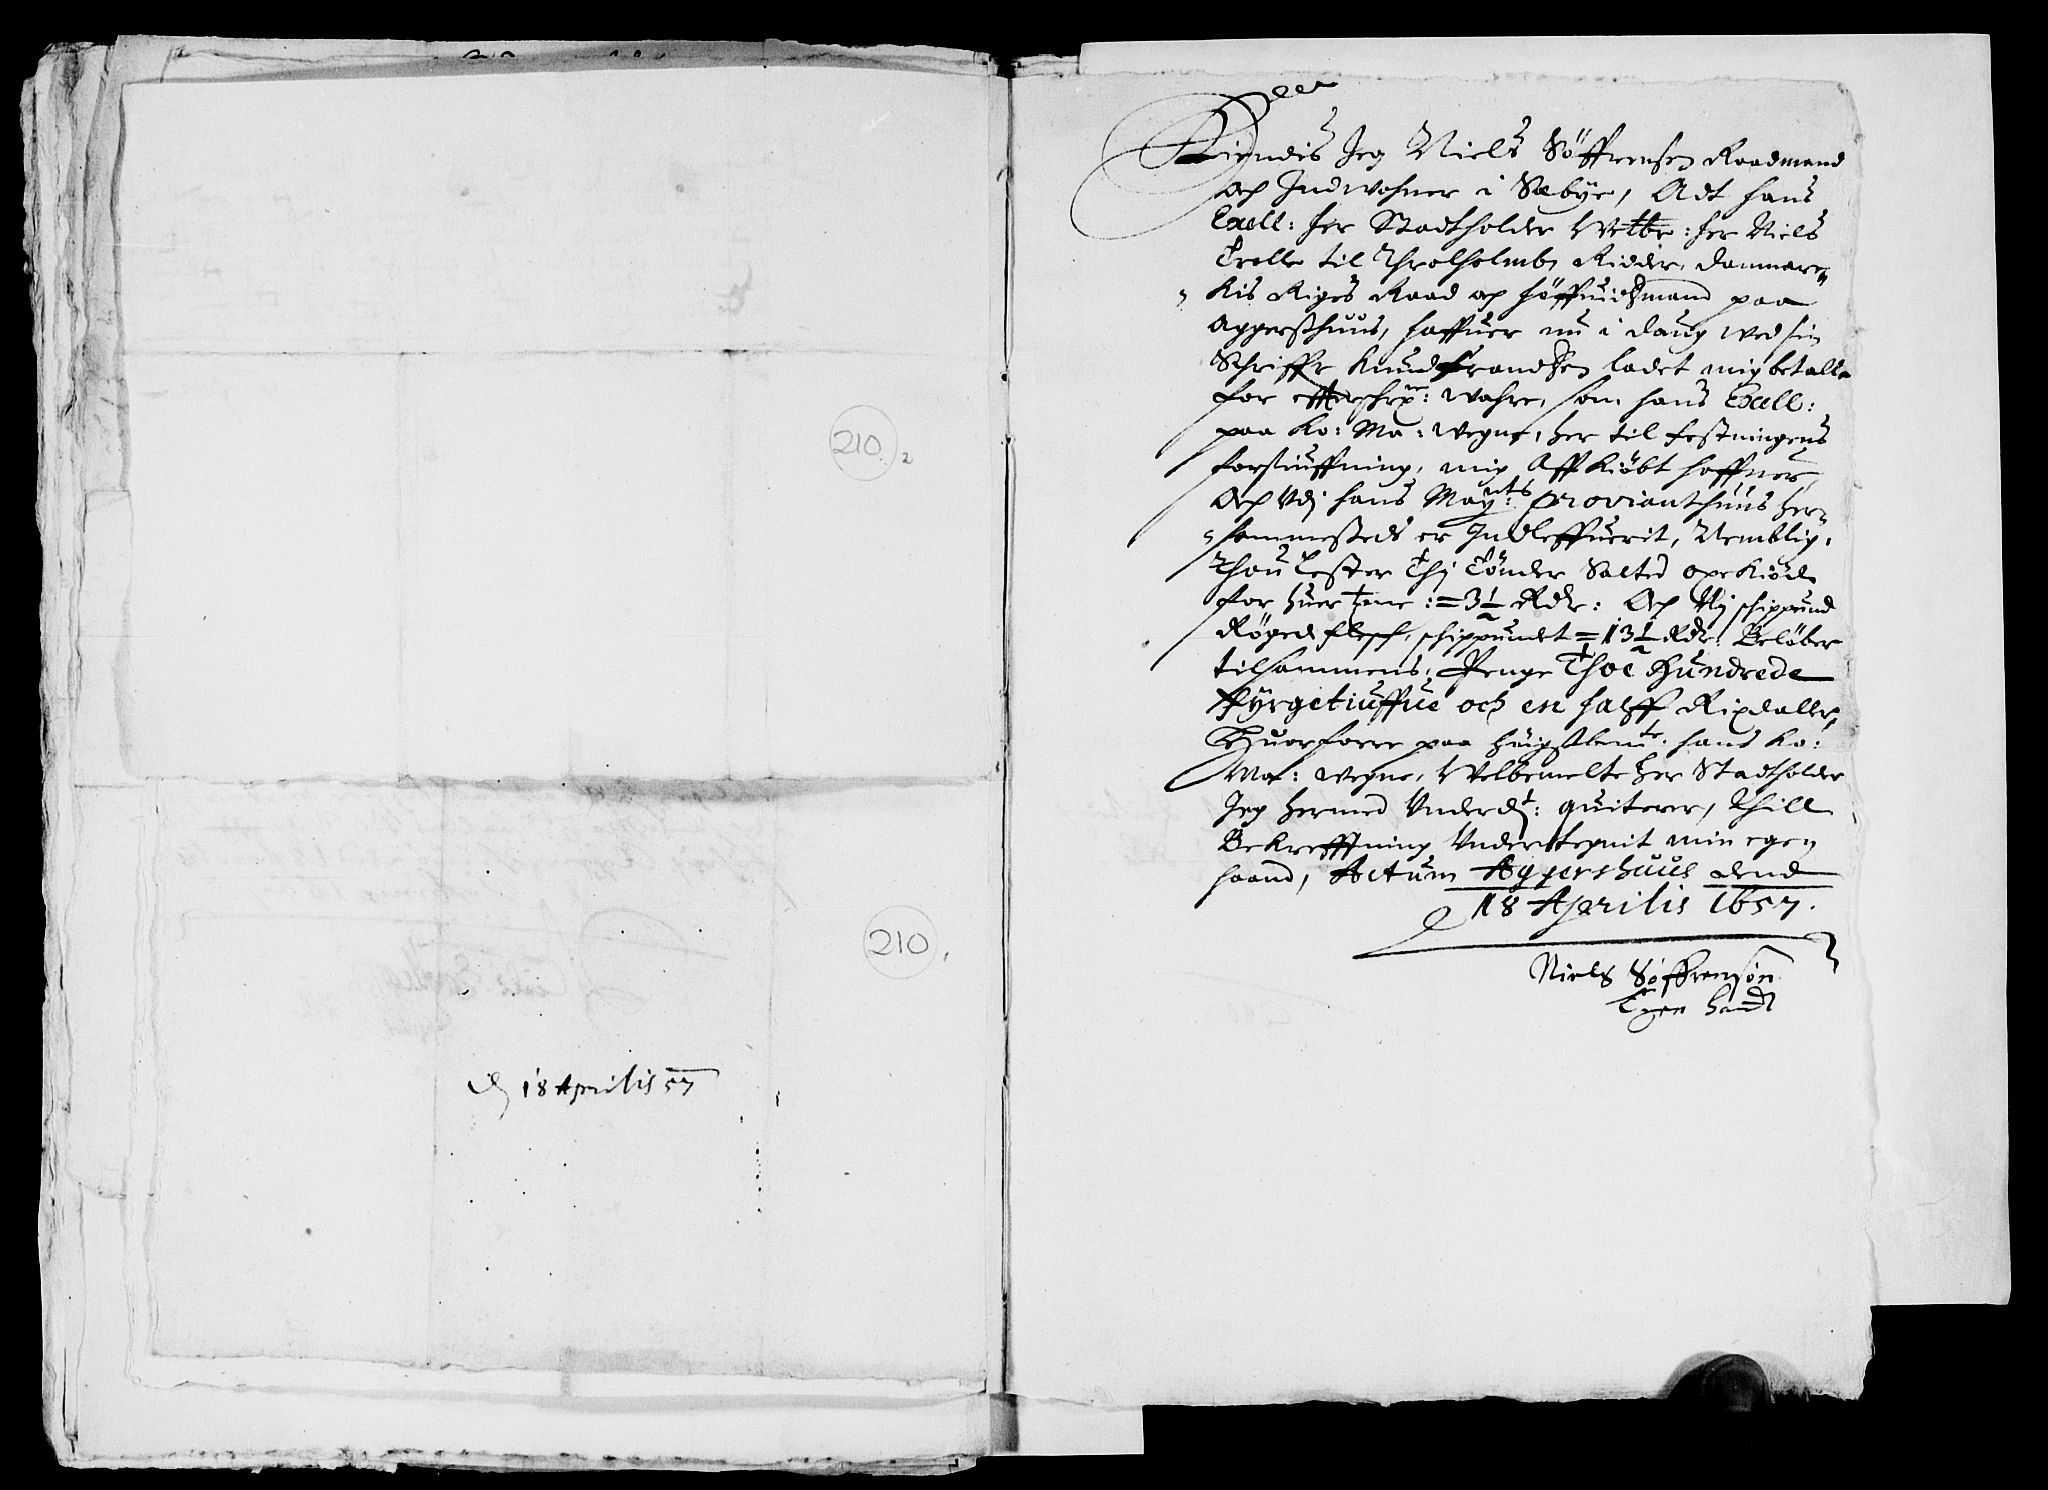 210. 2
210.
d 18 Aprilis 57
Kiendis Jeg Niels Söffrensen Raadmand
och Indwohner i Sæbye, Adt hans
Excell: her Stadtholder Welbr: her Niels
Trolle til Throlholmb Ridder, Danmarc=
=kis Riges Raad och höffuidzmand paa
Aggerszhuus, haffuer nu i daug wed sin
Schriffr Knud Frandzen ladet mig betalle
for effterschrne: wahre, som hans Excell:
paa Ko: Ma: wegne, her til festningens
forsiuffning, mig Aff Kiöbt haffuer,
Och Udj hans Mayts: Provianthuus her=
=sammesteds er Indleffuerit, Nemblig,
Thou Lester Thj Tönder Salted oxe Kiöd
for huer tne: =3½ Rdr: Och Vj schippund
Röged flesch, schippundet =13½ Rdr: Belöber
tilsammens, Penge Thoe Hundrede
Fyrgetiuffue och en halff Rixdaller,
Huorforre paa höigstbemte: hans Ko:
Ma: wegne, Welbemelte her Stadtholder
Jeg hermed Underd: quiterer, Thill
Bekreffning Understegnit min egen
haand, Actum Aggershuus dend
18 Aprilis 1657.
Niels Söffrensön
Egen handt